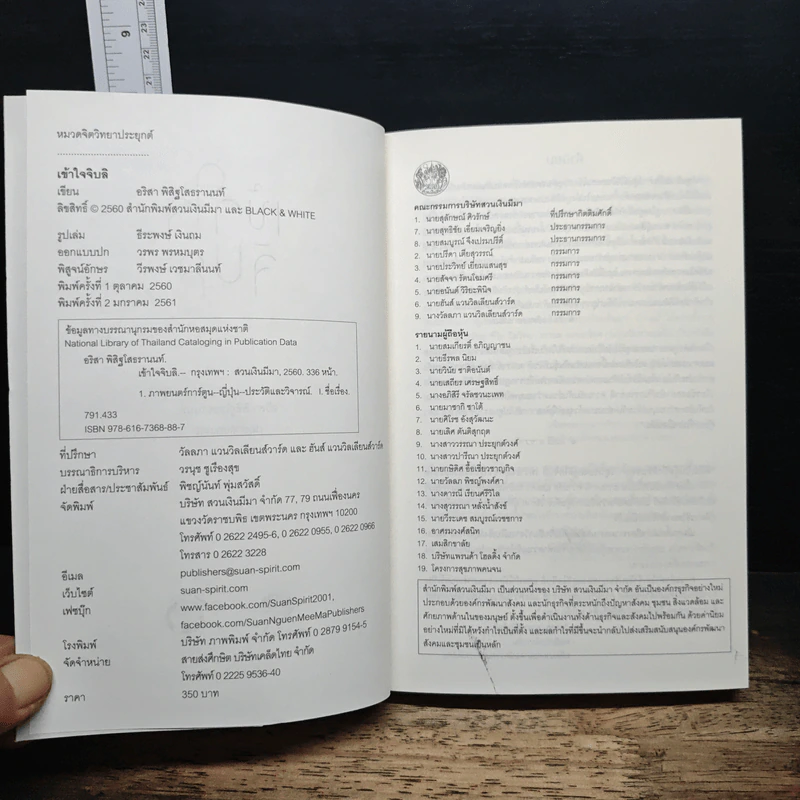 หมวดจิตวิทยาประยุกต์
เข้าใจจิบลิ
เขียน อริสา พิสิฐโสธรานนท์
ลิขสิทธิ์ © 2560 สำนักพิมพ์สวนเงินมีมา และ BLACK & WHITE
รูปเล่ม ธีระพงษ์ เงินถม
ออกแบบปก วรพร พรหมบุตร
พิสูจน์อักษร วีรพงษ์ เวชมาลีนนท์
พิมพ์ครั้งที่ 1 ตุลาคม 2560
พิมพ์ครั้งที่ 2 มกราคม 2561
ข้อมูลทางบรรณานุกรมของสำนักหอสมุดแห่งชาติ
National Library of Thailand Cataloging in Publication Data
อริสา พิสิฐโสธรานนท์.
เข้าใจจิบลิ.-- กรุงเทพฯ : สวนเงินมีมา, 2560. 336 หน้า.
1. ภาพยนตร์การ์ตูน--ญี่ปุ่น--ประวัติและวิจารณ์. I. ชื่อเรื่อง.
791.433
ISBN 978-616-7368-88-7
ที่ปรึกษา วัลลภา แวนวิลเลียนส์วาร์ด และ ฮันส์ แวนวิลเลียนส์วาร์ด
บรรณาธิการบริหาร วรนุช ชูเรืองสุข
ฝ่ายสื่อสาร/ประชาสัมพันธ์ พิชญ์นันท์ พุ่มสวัสดิ์
จัดพิมพ์ บริษัท สวนเงินมีมา จำกัด 77, 79 ถนนเฟื่องนคร
แขวงวัดราชบพิธ เขตพระนคร กรุงเทพฯ 10200
โทรศัพท์ 0 2622 2495-6, 0 2622 0955, 0 2622 0966
โทรสาร 0 2622 3228
อีเมล publishers@suan-spirit.com
เว็บไซต์ suan-spirit.com
เฟซบุ๊ก www.facebook.com/SuanSpirit2001,
facebook.com/SuanNguenMeeMaPublishers
โรงพิมพ์ บริษัท ภาพพิมพ์ จำกัด โทรศัพท์ 0 2879 9154-5
จัดจำหน่าย สายส่งศึกษิต บริษัทเคล็ดไทย จำกัด
โทรศัพท์ 0 2225 9536-40
ราคา 350 บาท
คณะกรรมการบริษัทสวนเงินมีมา
1. นายสุลักษณ์ ศิวรักษ์ ที่ปรึกษากิตติมศักดิ์
7. นายสุทธิชัย เอี่ยมเจริญยิ่ง ประธานกรรมการ
8. นายสมบูรณ์ จึงเปรมปรีดิ์ ประธานกรรมการ
2. นายปรีดา เตียสุวรรณ์ กรรมการ
3. นายประวิทย์ เยี่ยมแสนสุข กรรมการ
4. นายสัจจา รัตนโฉมศรี กรรมการ
5. นายอนันต์ วิริยะพินิจ กรรมการ
6. นายฮันส์ แวนวิลเลียนส์วาร์ด กรรมการ
9. นางวัลลภา แวนวิลเลียนส์วาร์ด กรรมการ
รายนามผู้ถือหุ้น
1. นายสมเกียรติ์ อภิญญาชน
2. นายธีรพล นิยม
3. นายวินัย ชาติอนันต์
4. นายเสถียร เศรษฐสิทธิ์
5. นางอภิสิรี จรัลชวนะเพท
6. นายมาซากิ ซาโต้
7. นายศิโรช อังสุวัฒนะ
8. นายเลิศ ตันติสุกฤต
9. นางสาววรรณา ประยุกต์วงศ์
10. นางสาวปาริณา ประยุกต์วงศ์
11. นายกษิดิศ อื้อเชี่ยวชาญกิจ
12. นายวัลลภ พิชญ์พงศ์ศา
13. นางดารณี เรียนศรีวิไล
14. นางสุวรรณา หลั่งน้ำสังข์
15. นายวีระเดช สมบูรณ์เวชชการ
16. อาศรมวงศ์สนิท
17. เสมสิกขาลัย
18. บริษัทแพรนด้า โฮลดิ้ง จำกัด
19. โครงการสุขภาพคนจน
สำนักพิมพ์สวนเงินมีมา เป็นส่วนหนึ่งของ บริษัท สวนเงินมีมา จำกัด อันเป็นองค์กรธุรกิจอย่างใหม่
ประกอบด้วยองค์กรพัฒนาสังคม และนักธุรกิจที่ตระหนักถึงปัญหาสังคม ชุมชน สิ่งแวดล้อม และ
ศักยภาพด้านในของมนุษย์ ตั้งขึ้นเพื่อดำเนินงานทั้งด้านธุรกิจและสังคมไปพร้อมกัน ด้วยค่านิยม
อย่างใหม่ที่มิได้หวังกำไรเป็นที่ตั้ง และผลกำไรที่มีขึ้นจะนำกลับไปส่งเสริมสนับสนุนองค์กรพัฒนา
สังคมและชุมชนเป็นหลัก